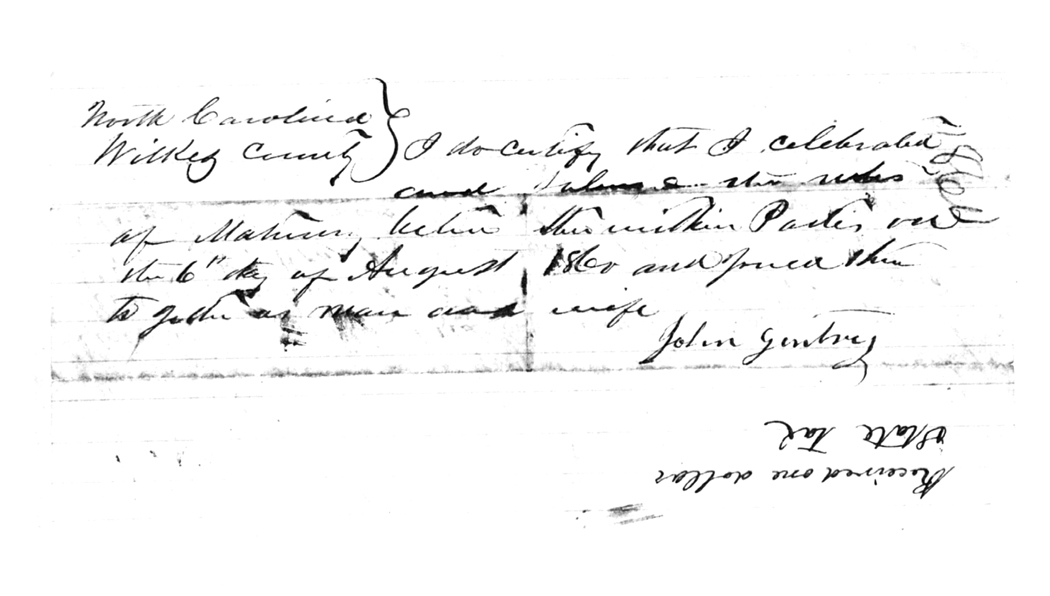 North Carolina
Wilkes County } I do certify that I celebrated
and the rites
of Matrimony between the within Parties on
the 6th day of August 1860 and joined them
to gether as man and wife
John Gentry
Received one dollar
State Tax